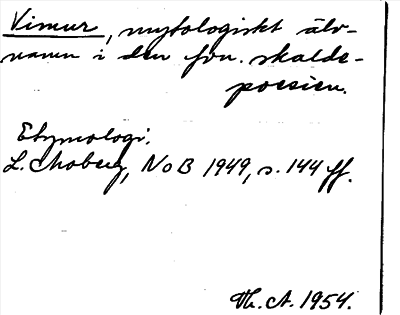 Vimur, mytologiskt älv-
namn i den fvn. skalde-
poesien.
Etymologi:
L. Moberg, NoB 1949, s. 144 ff.
Th. A. 1954.